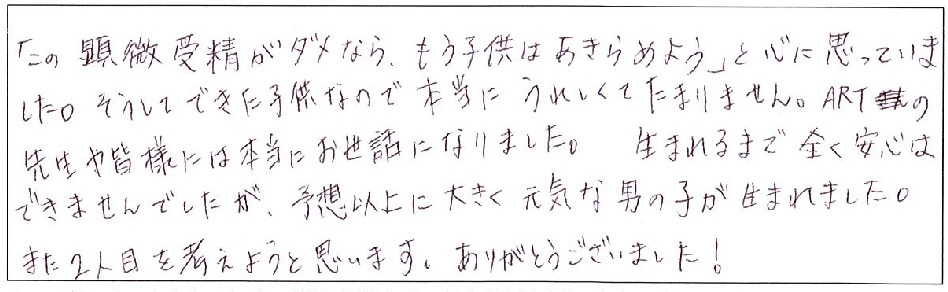 「この 顕微受精がダメなら、もう子供はあきらめよう」と心に思っていま
した。そうしてできた子供なので本当にうれしくてたまりません。ARTの
先生や皆様には本当にお世話になりました。 生まれるまで全く安心は
できませんでしたが、予想以上に大きく元気な男の子が生まれました。
また2人目を考えようと思います。ありがとうございました！